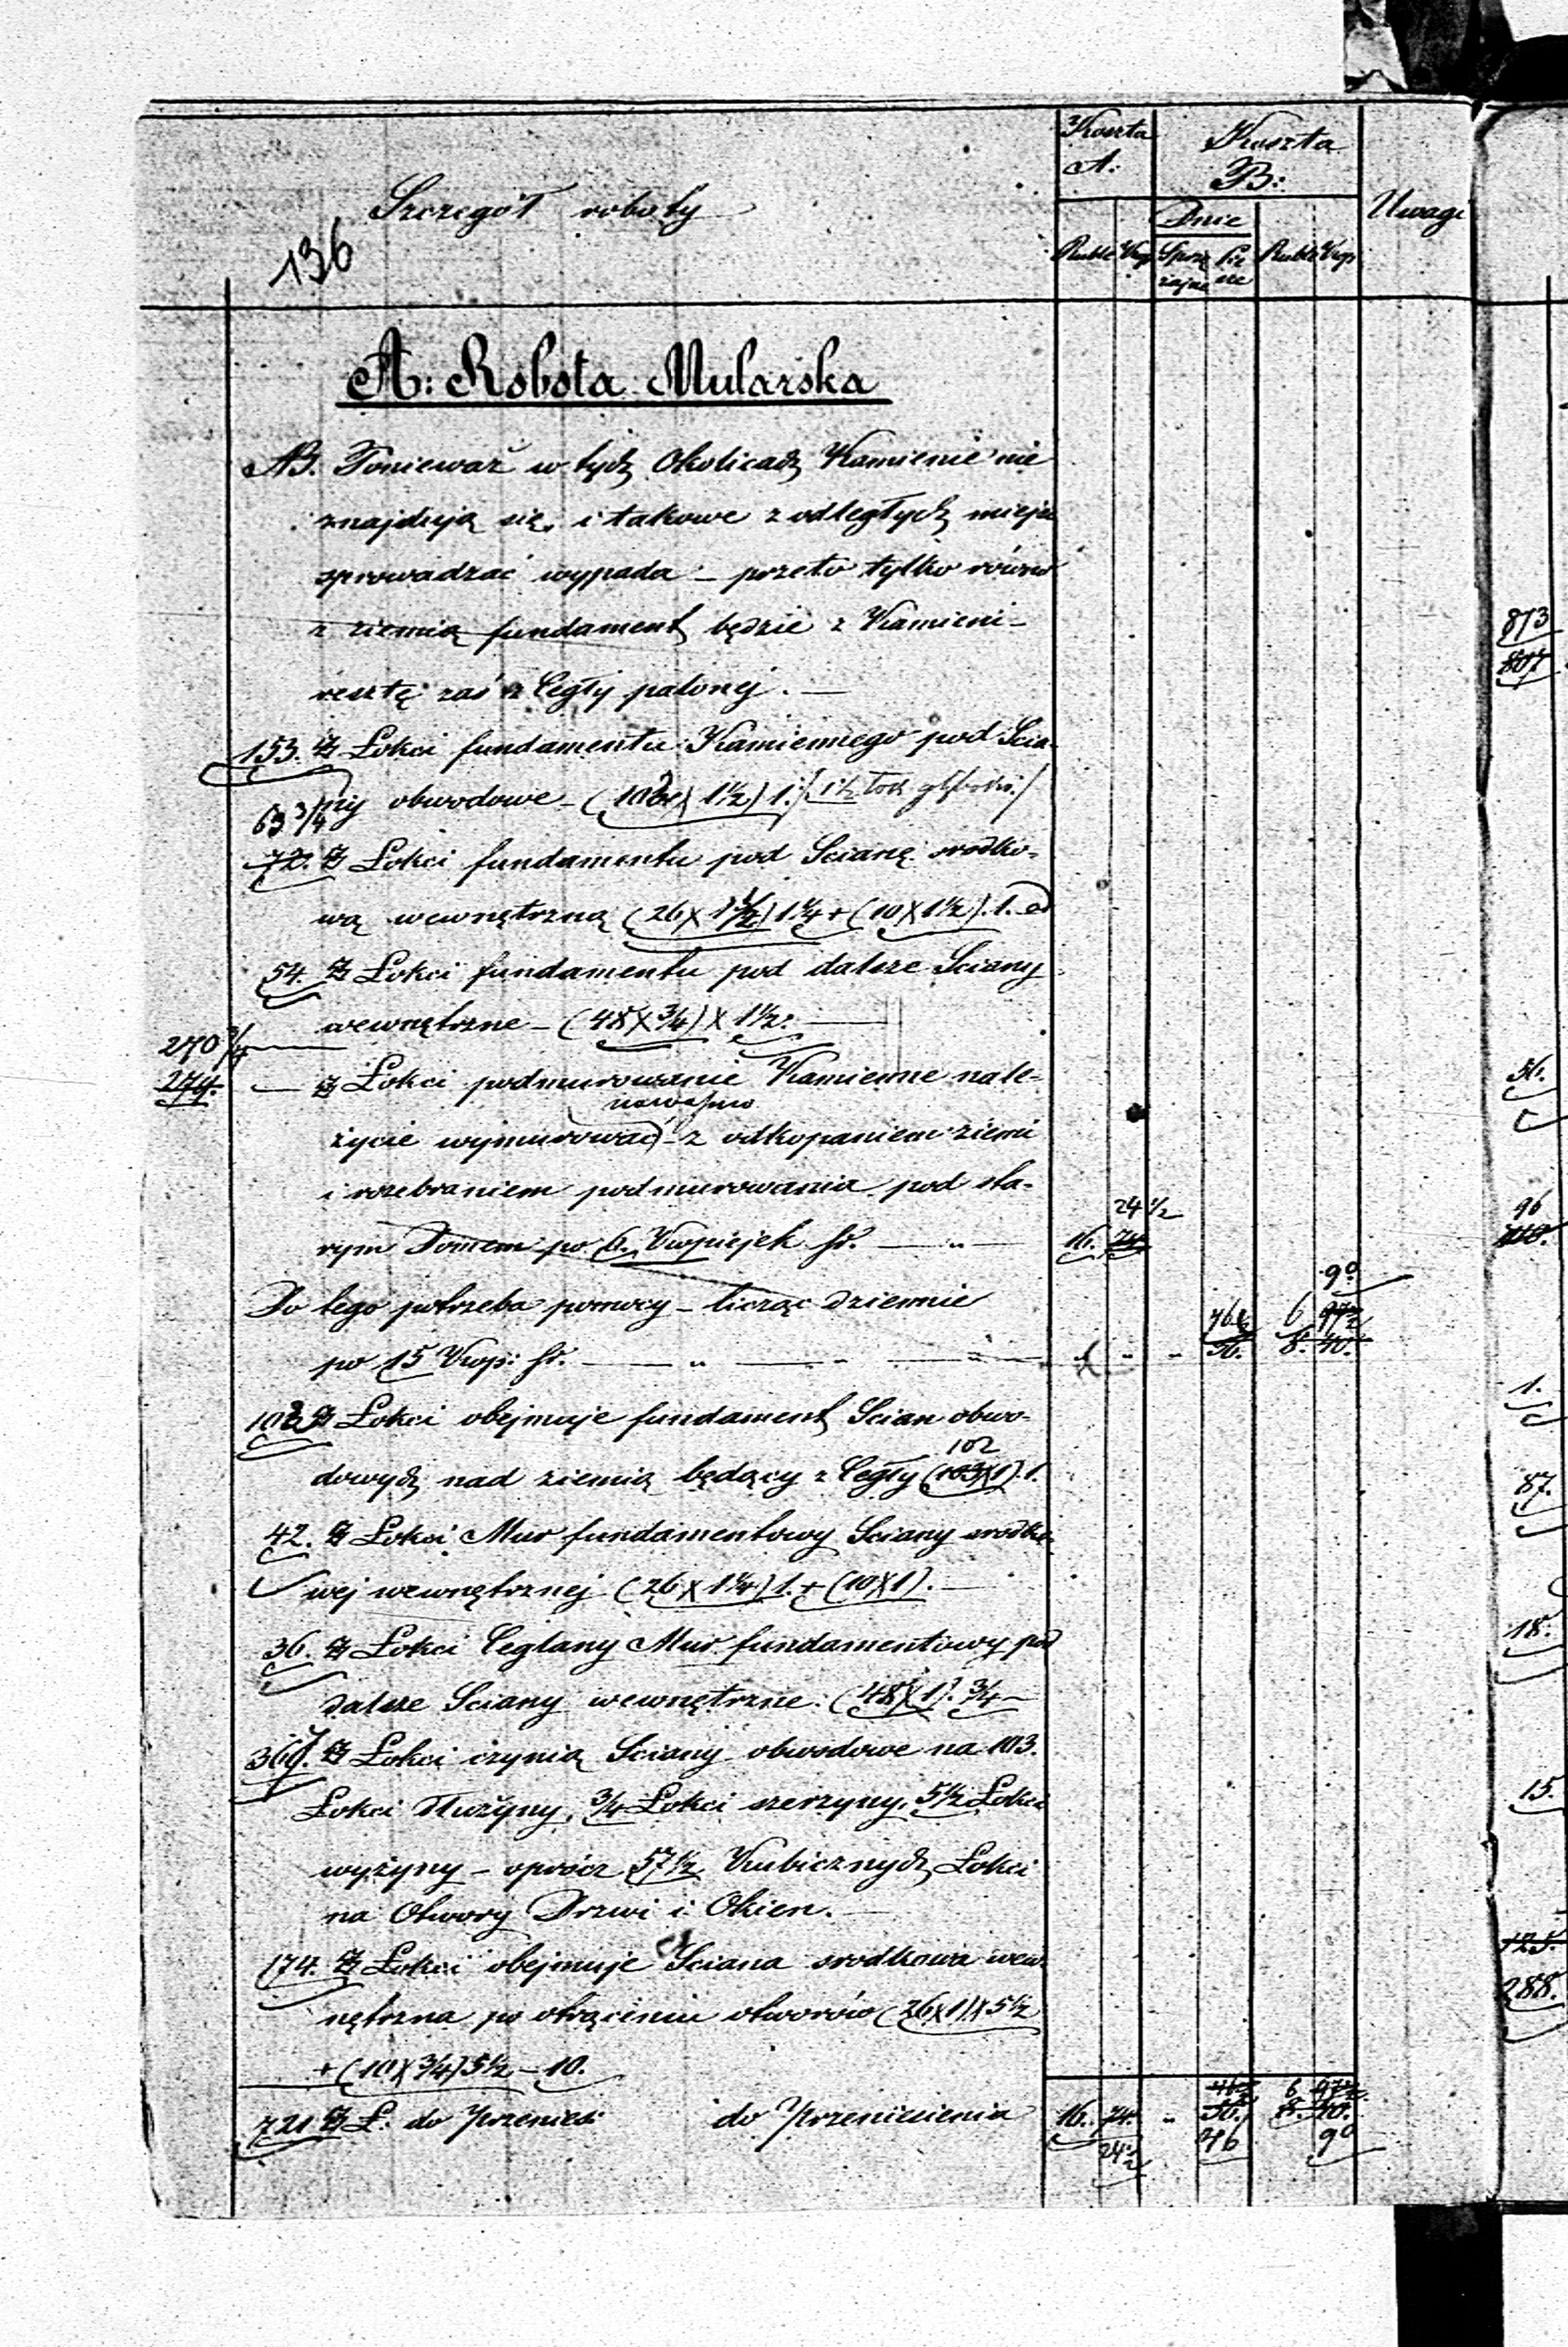 Koszta Koszta
A: B:
Szczegół roboty Dnie Uwagi
136 Ruble Kop Sprzężajne Piesze Ruble Kop
A: Robota Mularska
NB. Poniewaź w tych Okolicach Kamienie nie
znajdują się, i takowe z odległych miejsc
sprowadzać wypada – przeto tylko równo
z ziemią fundament będzie z Kamieni –
resztę zaś z Cegły palonej. —
153. Łokci fundamentu Kamiennego pod Ścia-
ny obwodowe – (102 X 1½) 1. /1½ łok. głęboki/
63 3/4
72. Łokci fundamentu pod Scianę srodko-
wą wewnętrzną (26 X 1½) 1¼ + (10 X 1½). 1.
54. Łokci fundamentu pod dalsze Sciany
wewnętrzne – (48 X ¾) X 1½. —
270 3/4
279. — Łokci podmurowanie Kamienne nale-
na wapno
życie wymurować – z odkopaniem ziemi
i rozebraniem podmurowania pod sta-
24 ½
rym Domem po 6. Kopiejek sr. — „ — 16. 74
90
Do tego potrzeba pomocy – licząc dziennie 46 6 97½
po 15 Kop: sr. — „ — „ — „ — „ „ „ 56. 8. 40.
102 Łokci obejmuje fundament Scian obwo-
102
dowych nad ziemią będący z Cegły (103 X 1). 1.
42. Łokci Mur fundamentowy Sciany srodko-
wej wewnętrznej (26 X 1¼) 1. + (10 X 1). —
36. Łokci Ceglany Mur fundamentowy pod
dalsze Sciany wewnętrzne. (48 X 1). ¾ –
367. Łokci czynią Sciany obwodowe na 103.
Łokci dłużyny, ¾ Łokci szerzyny, 5½ Łokci
wyżyny – oprócz 57½ Kubicznych Łokci
na Otwory Drzwi i Okien. —
174. Łokci obejmuje Sciana srodkowa wew-
nętrzna po otrąceniu otworów (26 X 1) X 5½
+ (10 X ¾) 5½ – 10.
721 Ł. do przenies: do przeniesienia 16. 74. „ 56. 8. 40.
24½ 46 90
873
807
56.
96
1.
87.
18.
15.
125.
288.